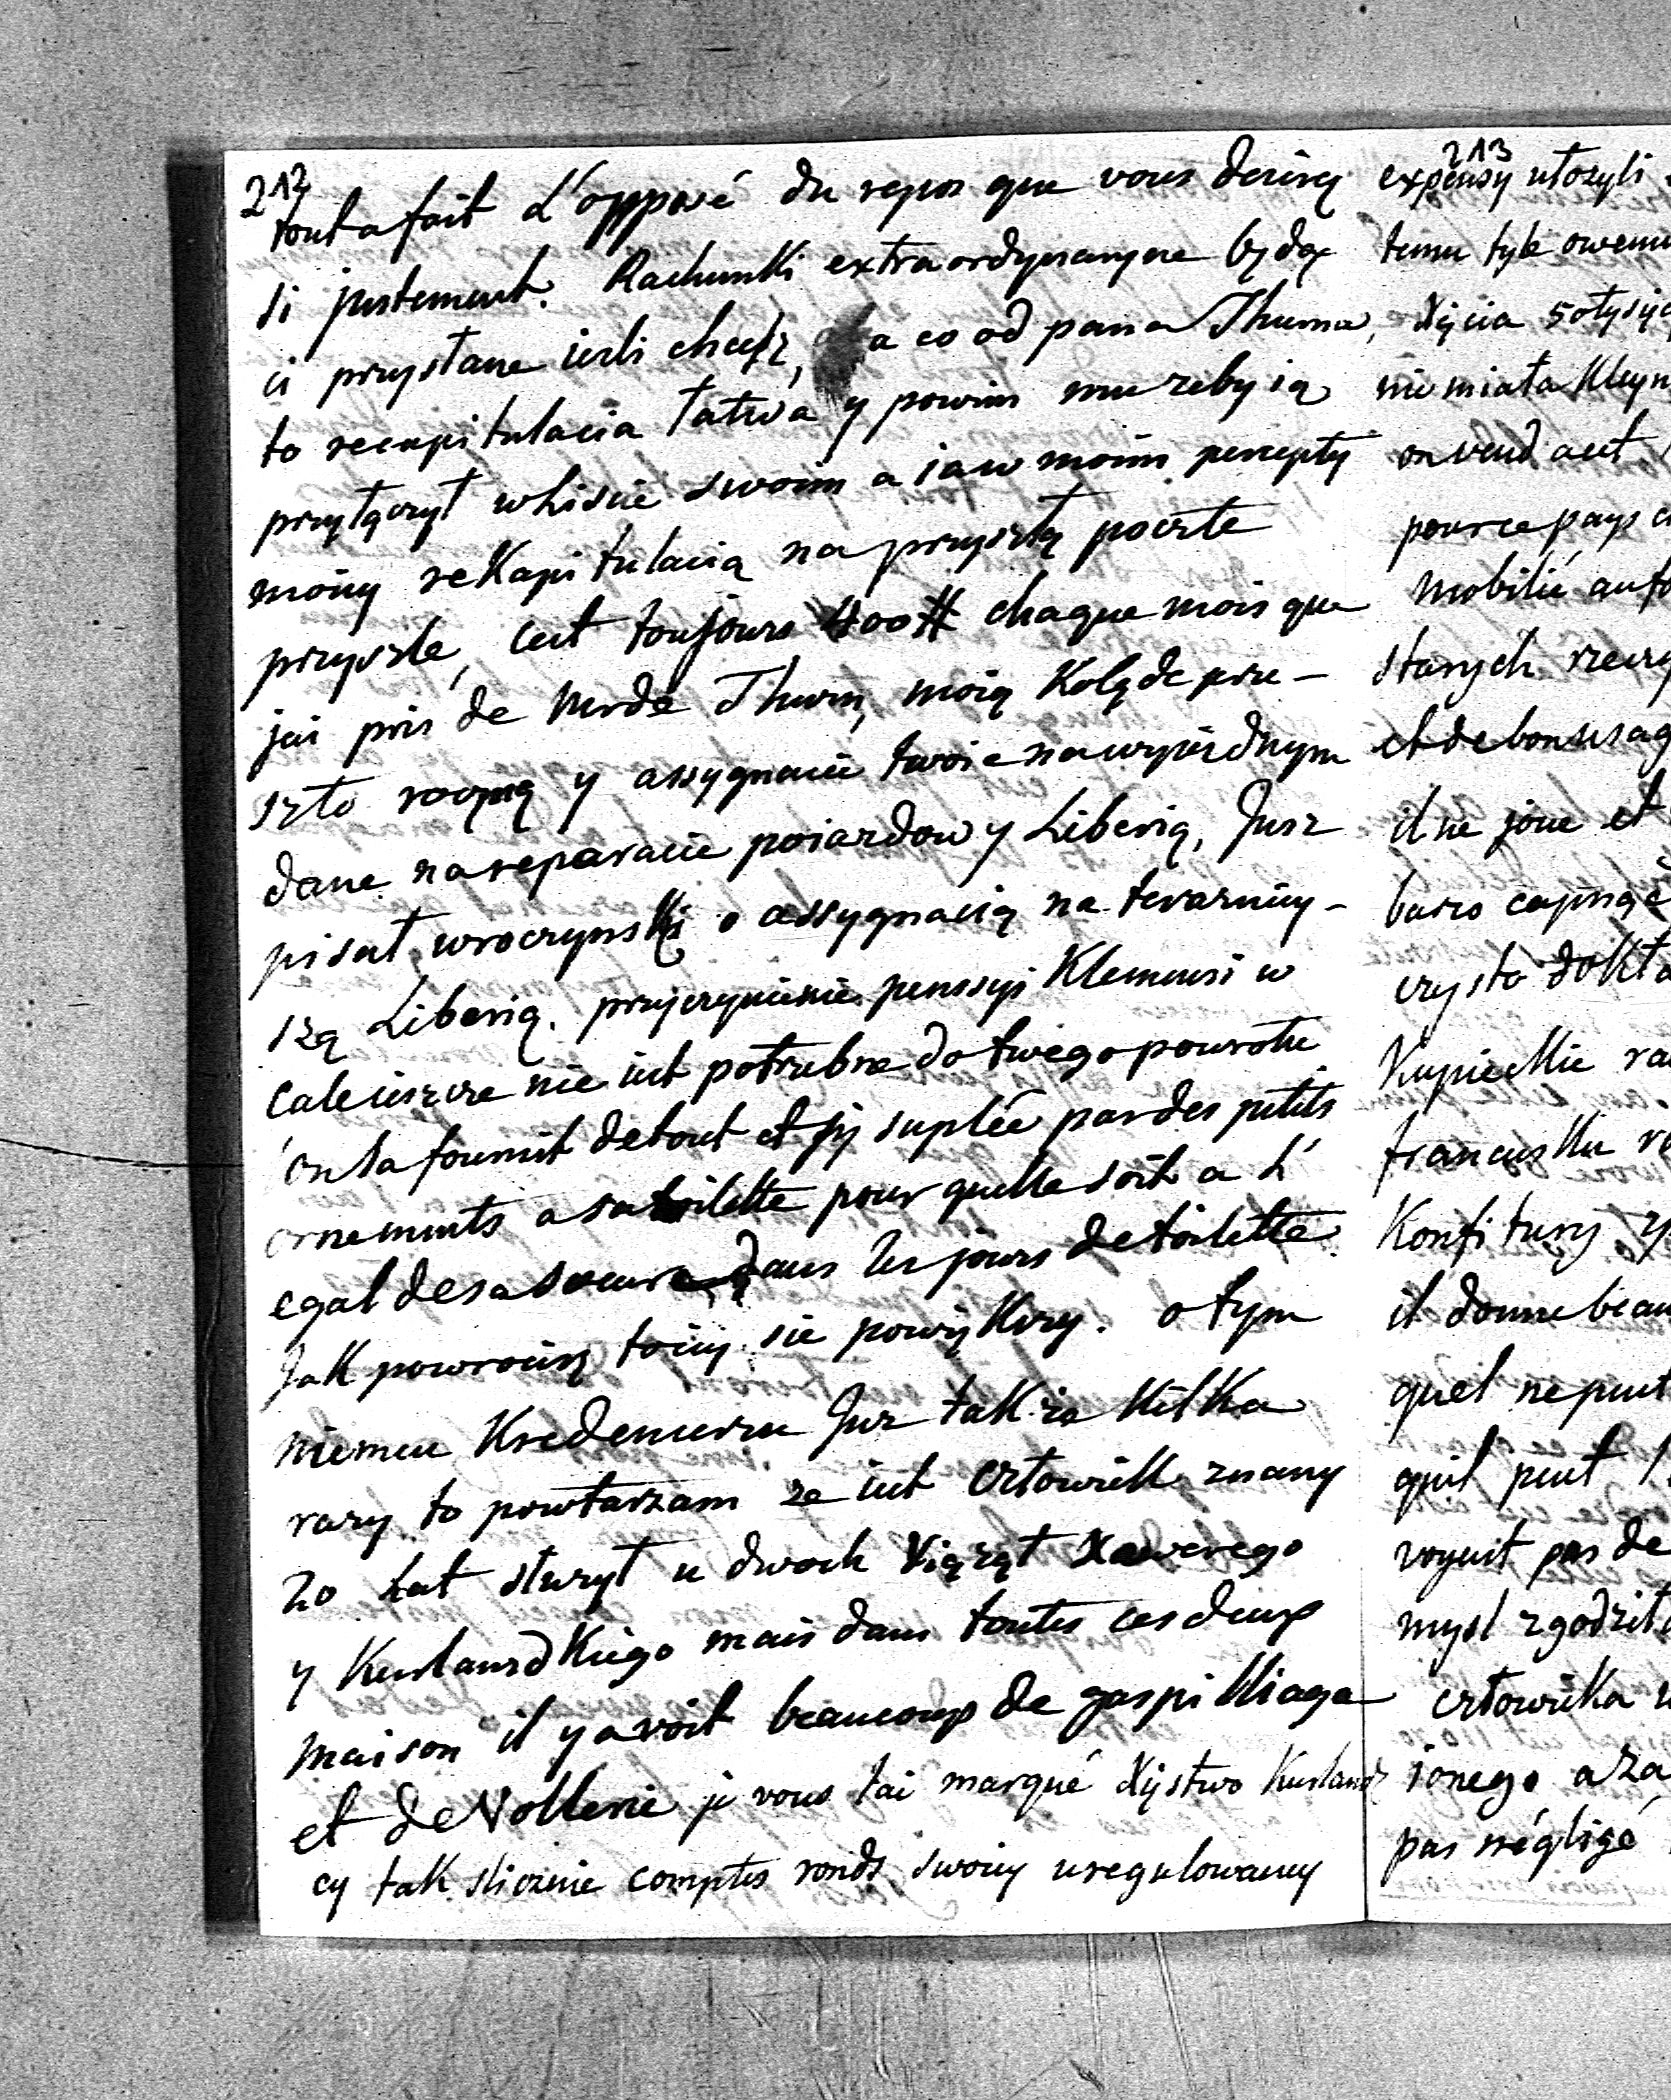 212
tout a fait L'opposé du repos que vous desirez
si justement. Rachunki extraordynaryne będą
ci przysłane iesli chcesz, a co od pana Thurna,
to recapitulacia łatwa y powiem mu zeby ią
przyłączył w Liscie swoim a ia w moim percepty
moiey reKapitulacią na przyszłą poczte
przyszle, cest toujours 400# chaque mois que
jai pris de Mr de Thurn, moią Kolęde prze-
szło roczną y assygnacie twoie na wyiezdnym
dane na reparacie poiazdow y Liberią, Jusz
pisał wroczynski o assygnacią na terazniey-
szą Liberią. przyczynienie penssyi Klemensi w
cale ieszcze nie iest potrzebne do twego powrotu
on la fournit de tout et jy suplée par des petits
ornements a sa toilette pour quelle soit a L'
egal de sa soeur dans les jours de toilette.
Jak powrocisz to iey sie powiększy. o tym
niemcu Kredencerzu Juz tak za kilka
razy to powtarzam ze iest Człowiek znany
20 Lat słuzył u dwoch Xiąząt Xawerego
y Kurlandzkiego mais dans toutes ces deux
maison il y avoit beaucoup de gaspilliage
et de Vollerie je vous lai marqué Xięstwo Kurlandz
cy tak slicznie comptes ronds swoiey uregulowaney
213
expensy ułozyli
temu tyle owemu
Xięcia
nie miała Kleyn
on vend
pour ce pays
Mobilié
starych rzeczy
et de bon usag
il ne joue et
barzo
czysto dokła
Kupieckie
francuskie
Konfitury
il donne beau
quel ne peut
quil peut
voyent pas de
mysl zgodziła
człowieka
ionego a za
pas négligé